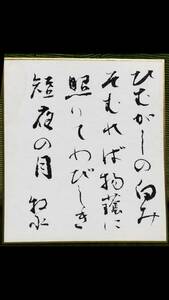 ひむがしの白み
そむれば物蔭に
照りてわびしき
短夜の月 牧水